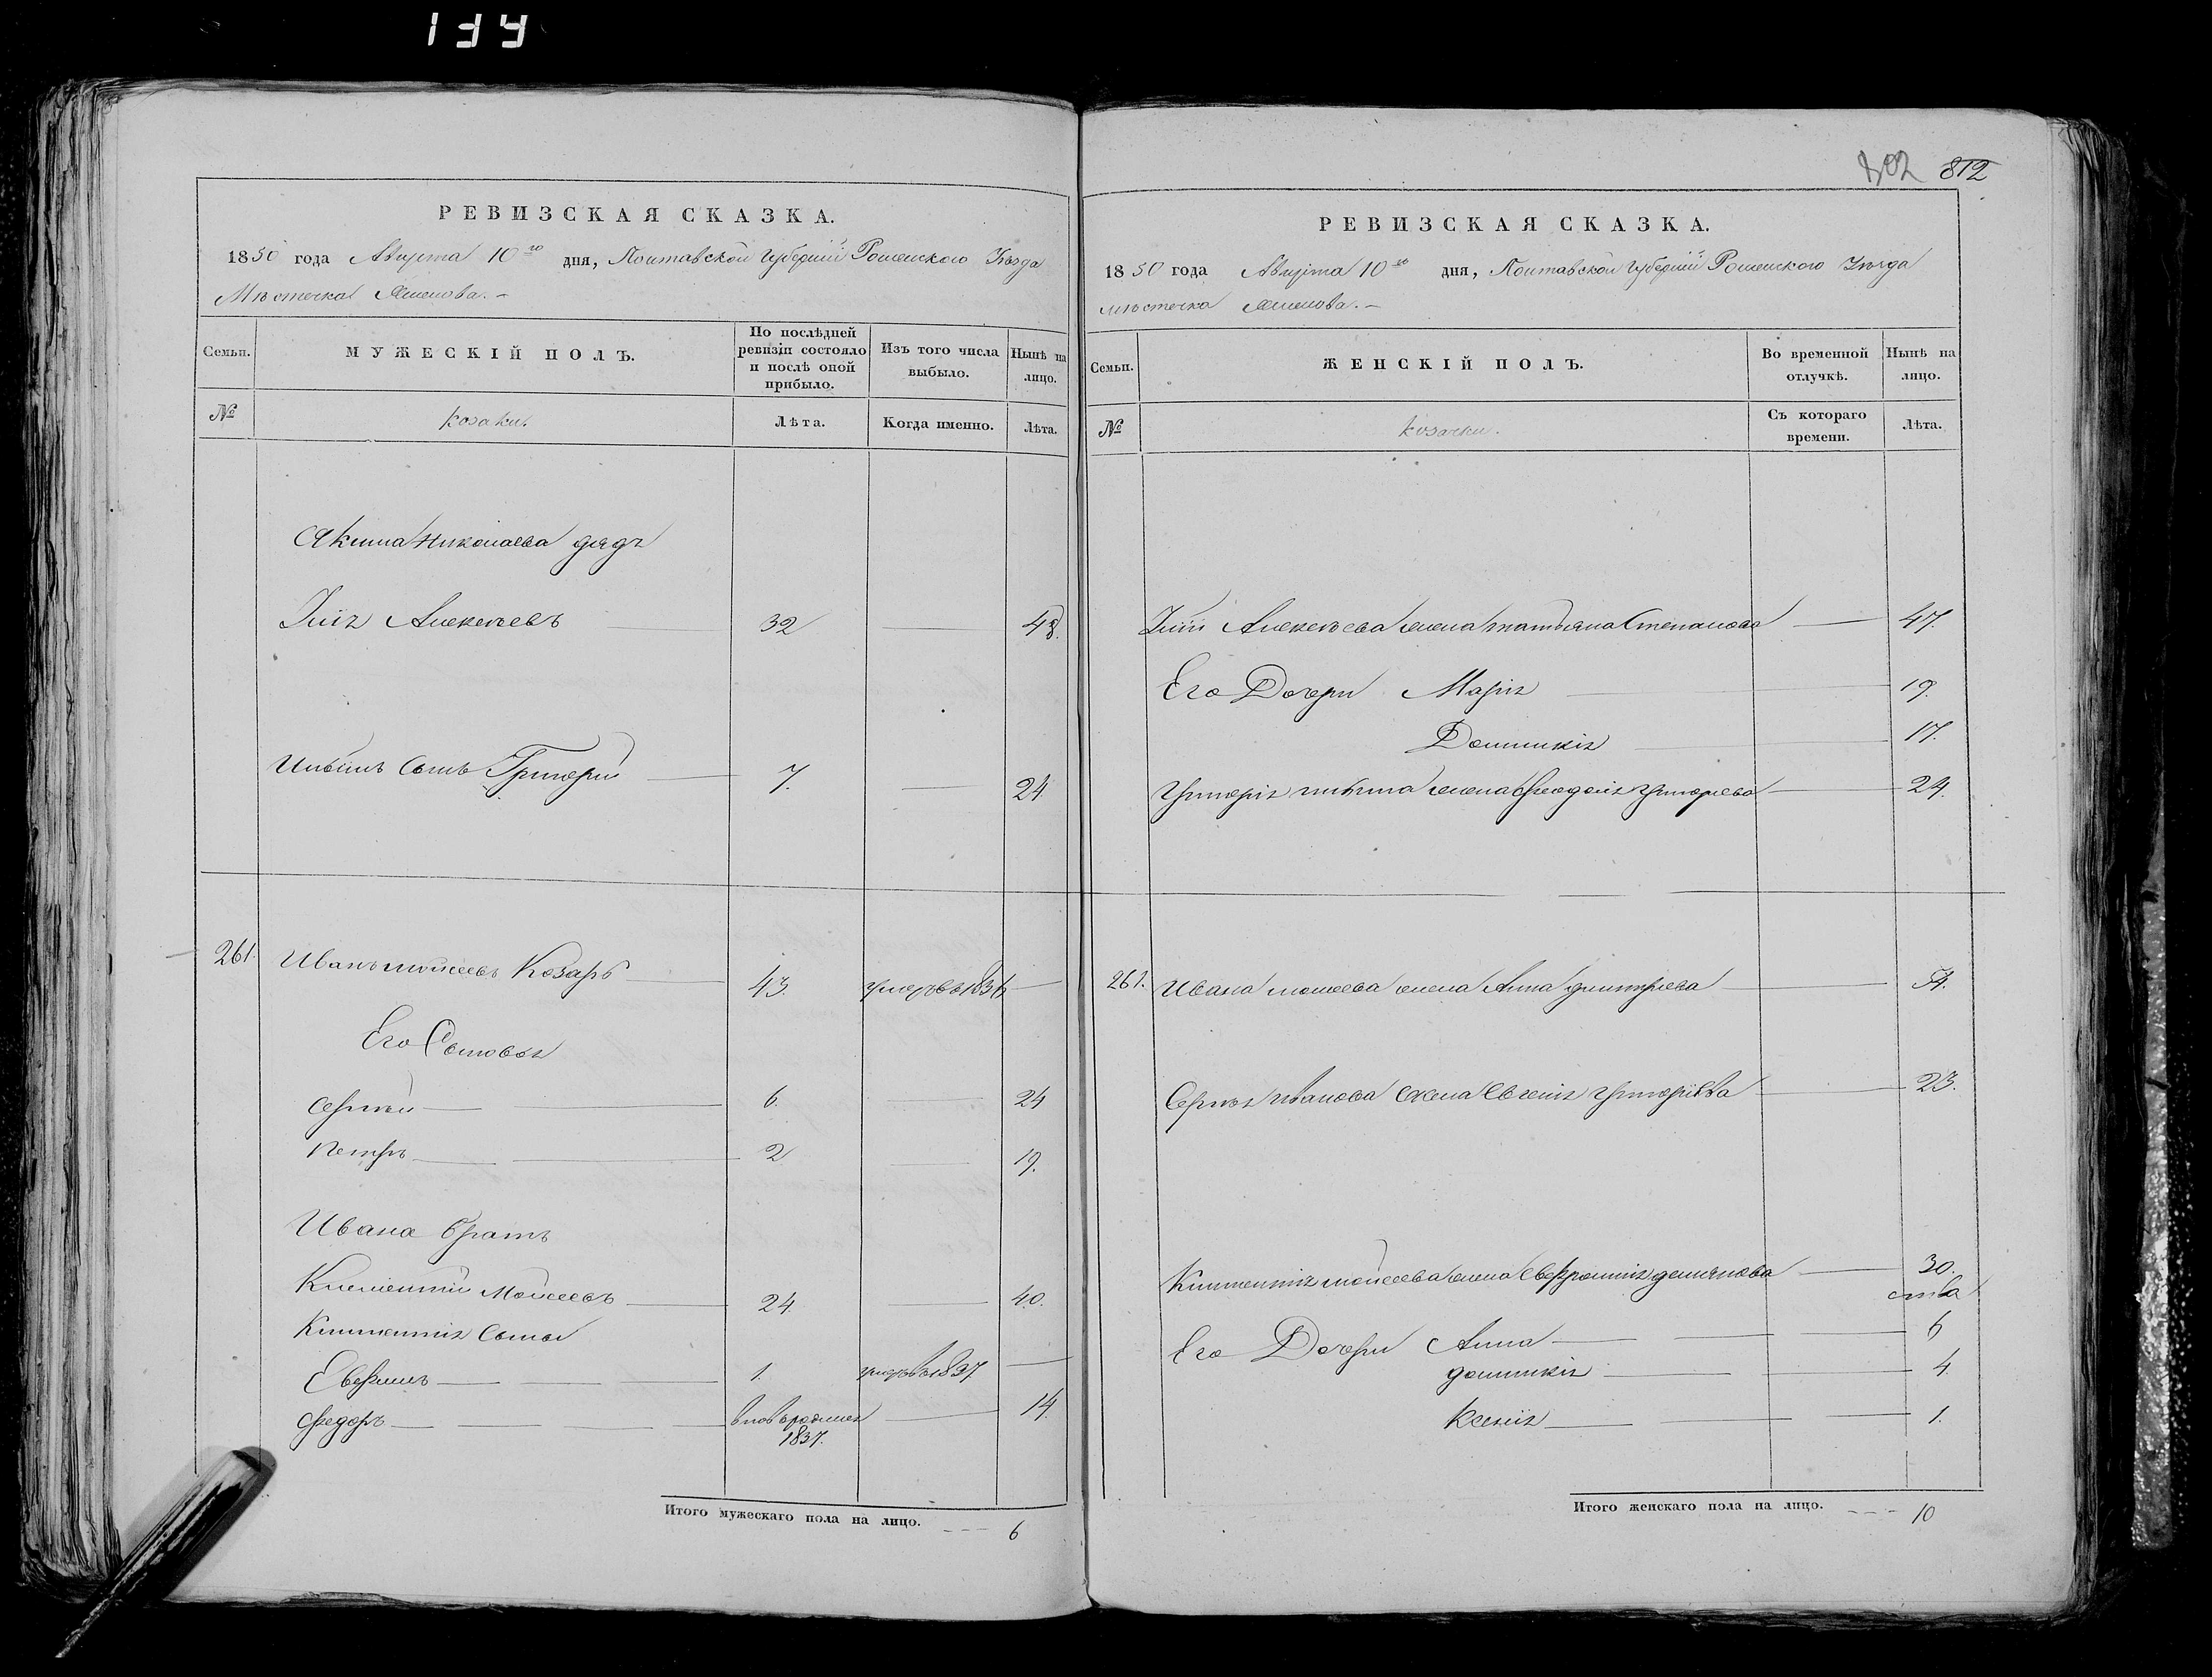 139
РЕВИЗСКАЯ СКАЗКА.
1850 года Августа 10го дня, Полтавской Губернии Роменского Уѣзда
Мѣстечка
Семьи.
МУЖЕСКІЙ ПОЛЪ.
По послѣдней ревизіи состояло и послѣ оной прибыло.
Изъ того числа выбыло.
Нынѣ на лицо.
№
козаки.
Лѣта.
Когда именно.
Лѣта.
Якима Николаева дядъ
Алексѣевъ 32 48.
сынъ Григорий 7. 24
261. Иванъ Моисеевъ Козаръ 43. умеръ въ 1836
Его Сыновья
Сергѣй 6. 24
Петръ 2 19.
Ивана братъ
Климентий Моисеевъ 24 40.
Климентия сыны
1. умеръ въ 1837
Федоръ вновь рожден 14.
1837.
Итого мужескаго пола на лицо. 6
802 812
РЕВИЗСКАЯ СКАЗКА.
1850 года Августа 10го дня, Полтавской Губернии Роменского Уѣзда
мѣстечка
Семьи.
ЖЕНСКІЙ ПОЛЪ.
Во временной отлучкѣ.
Нынѣ на лицо.
№
козачки.
Съ котораго времени.
Лѣта.
Алексѣева жена Татьяна Степанова 47.
Его Дочери Мария 19.
Домникия 17.
Григория жена Феодосия Григорьева 24.
261. Ивана Моисеева жена Анна Дмитриева
Сергѣя Иванова жена Евгения Григориева 23.
Климентия Моисеева жена Демянова 30.
Его Дочери Анна 6
Домникия 4.
Ксения 1.
Итого женскаго пола на лицо. 10